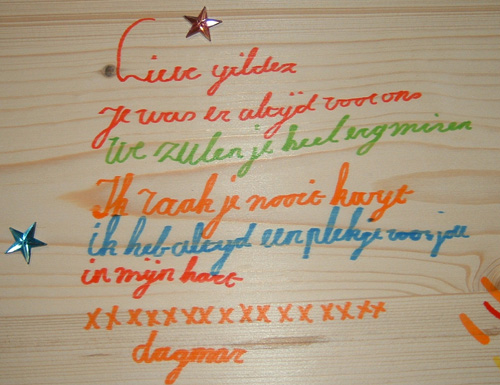 Lieve yildez
Je was er altijd voor ons
We zulen je heel erg missen
Ik raak je nooit kwyt
ik heb altyd een plekje voor jou
in mijn hart
xxxxxxxxxxxxxxx
dagmar